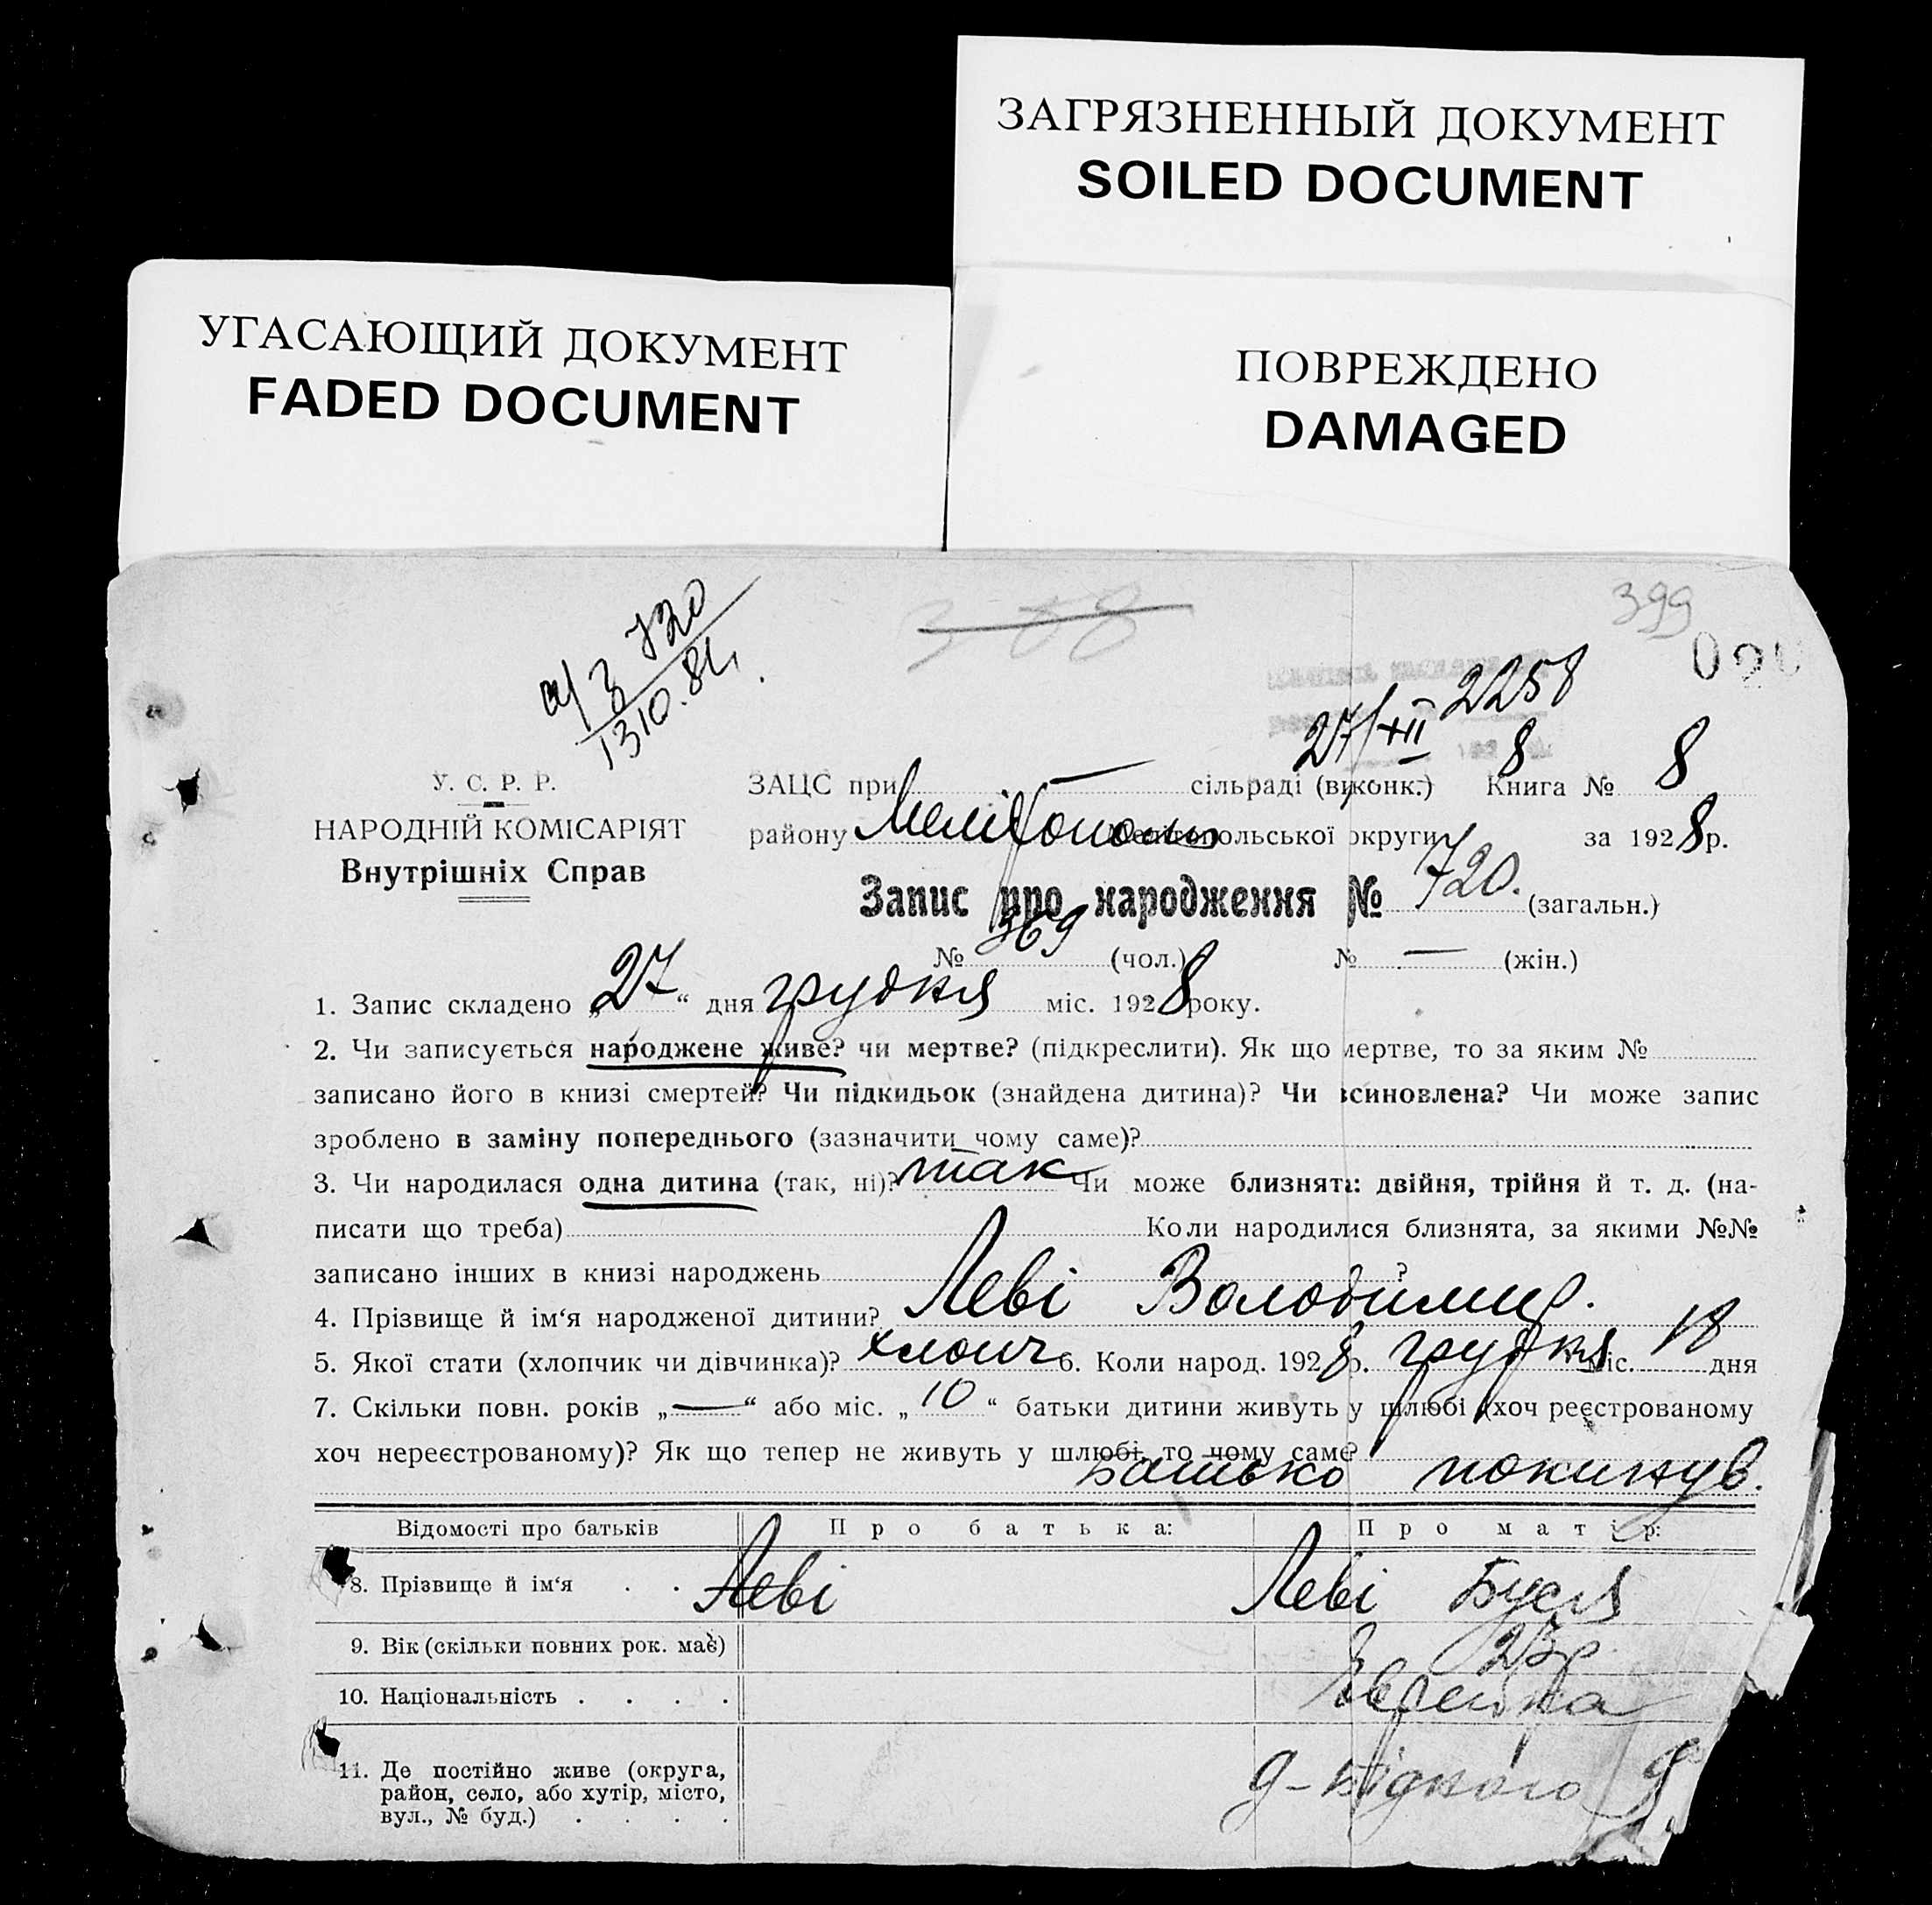 ЗАГРЯЗНЕННЫЙ ДОКУМЕНТ
SOILED DOCUMENT
УГАСАЮЩИЙ ДОКУМЕНТ
FADED DOCUMENT
ПОВРЕЖДЕНО
DAMAGED
399
а/з 720
1310.84
27/XII 2258
8
У. С. Р. Р.
НАРОДНІЙ КОМІСАРІЯТ
Внутрішніх Справ
ЗАЦС при — сільраді (виконк.) Книга № 8
району Мелітополь Мелітопольської округи за 1928 р.
Запис про народження № 720. (загальн.)
№ 369 (чол.) № — (жін.)
1. Запис складено „27“ дня грудня міс. 1928 року.
2. Чи записується народжене живе? чи мертве? (підкреслити). Як що мертве, то за яким №
записано його в книзі смертей? Чи підкидьок (знайдена дитина)? Чи всиновлена? Чи може запис
зроблено в заміну попереднього (зазначити чому саме)?
3. Чи народилася одна дитина (так, ні)? так Чи може близнята: двійня, трійня й т. д. (на-
писати що треба) Коли народилися близнята, за якими №№
записано інших в книзі народжень ?
4. Прізвище й ім‘я народженої дитини? Леві Володимир.
5. Якої стати (хлопчик чи дівчинка)? хлопч 6. Коли народ. 1928 р. грудня міс. 18 дня
7. Скільки повн. років „—“ або міс. „10“ батьки дитини живуть у шлюбі (хоч реєстрованому
хоч нереєстрованому)? Як що тепер не живуть у шлюбі, то чому саме?
батько покинув.
Відомості про батьків Про батька: Про матір:
8. Прізвище й ім‘я . . Леві Леві Буся
9. Вік (скільки повних рок. має) 23 р.
10. Національність . . . . Еврейка
11. Де постійно живе (округа,
район, село, або хутір, місто,
вул., № буд.) . . . .